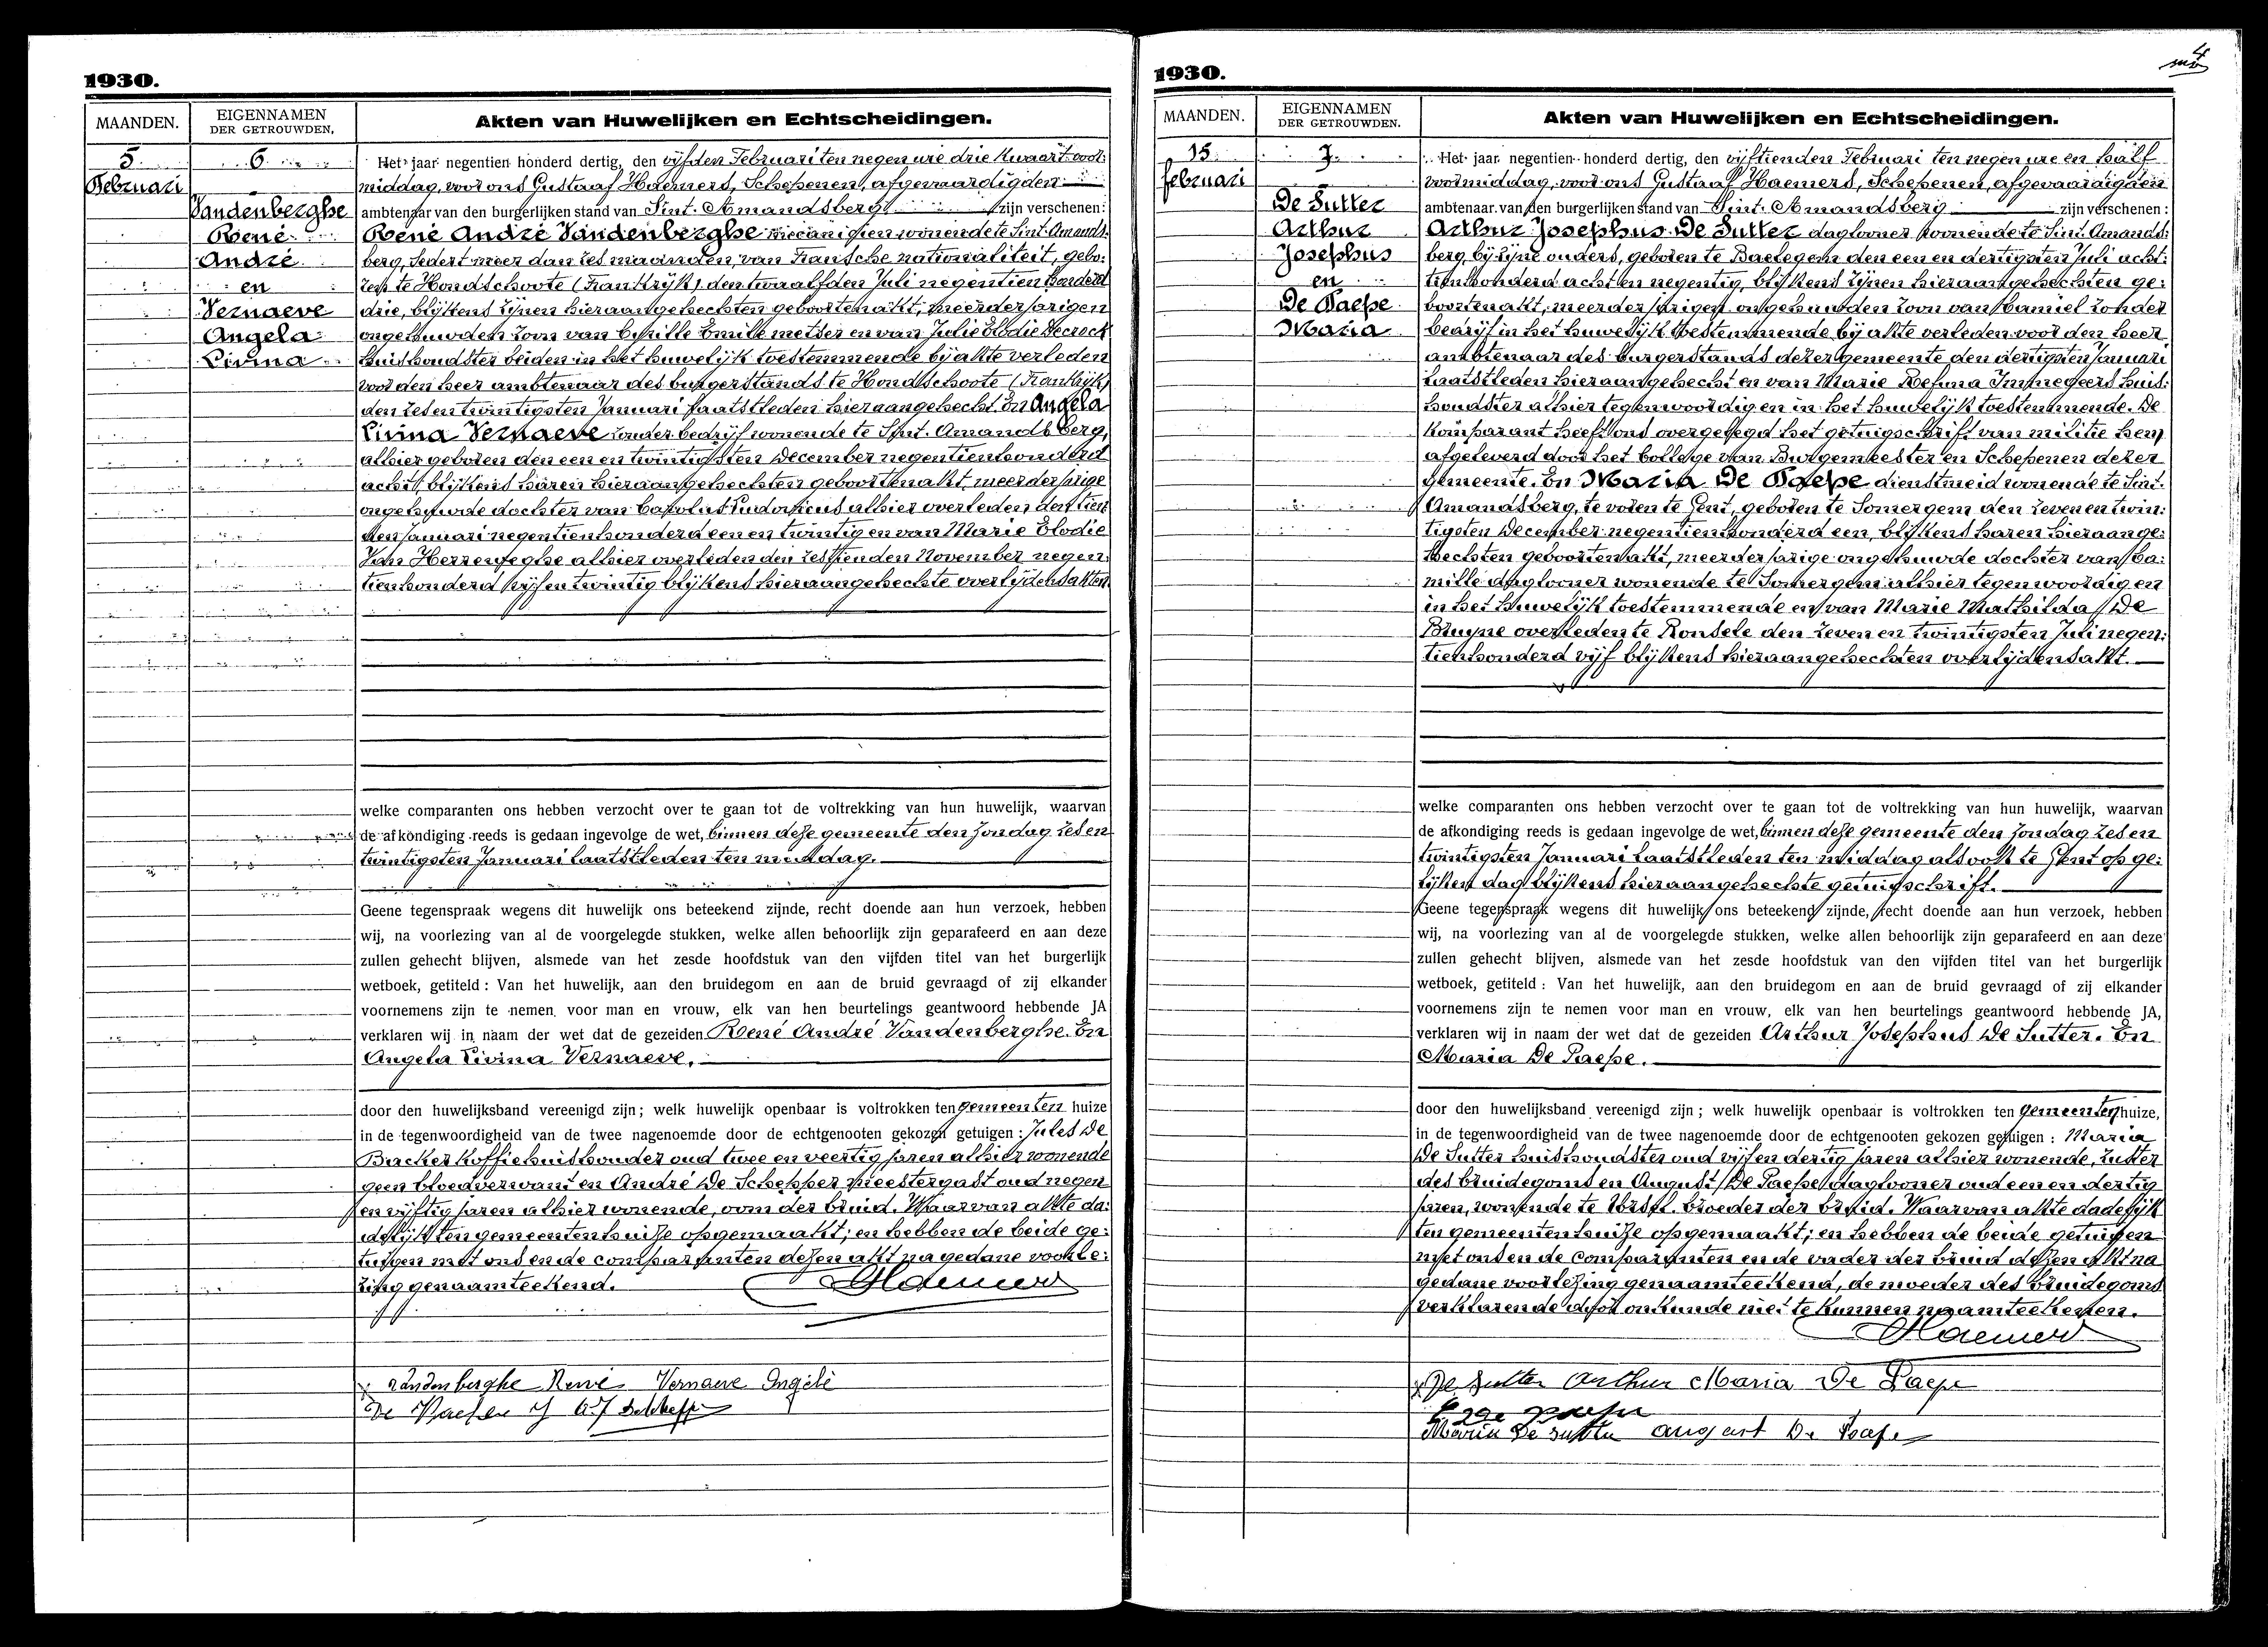 1930.
MAANDEN.
EIGENNAMEN
DER GETROUWDEN.
Akten van Huwelijken en Echtscheidingen.
5
Februari
6
Vandenberghe
René
André
en
Vernaeve
Angela
Livina
Het jaar negentien honderd dertig, den vijfden Februari ten negen ure drie kwaart voor:
middag, voor ons Gustaaf Haemers, Schepenen, afgevaardigden
ambtenaar van den burgerlijken stand van Sint-Amandsberg zijn verschenen:
René André Vandenberghe mecanicien wonende te Sint-Amands:
berg, sedert meer dan zes maanden, van Fransche nationaliteit, gebo:
ren te Hondschoote (Frankrijk) den twaalfden Juli negentien honderd
drie, blijkens zijnen hieraangehechten geboortenakt, meerderjarigen
ongehuwden zoon van Cyrille Emile metser en van Julie Elodie Decrock
huishoudster beiden in het huwelijk toestemmende bij akte verleden
voor den heer ambtenaar des burgerstands te Hondschoote (Frankrijk)
den zes en twintigsten Januari laatstleden hieraangehecht. En Angela
Livina Vernaeve zonder bedrijf wonende te Sint-Amandsberg,
alhier geboren den een en twintigsten December negentienhonderd
acht, blijkens haren hieraangehechten geboortenakt, meerderjarige
ongehuwde dochter van Carolus Ludovicus alhier overleden den tien
den Januari negentienhonderd een en twintig en van Marie Elodie
Van Herreweghe alhier overleden den zestienden November negen:
tienhonderd vijf en twintig blijkens hieraangehechte overlijdensakten
welke comparanten ons hebben verzocht over te gaan tot de voltrekking van hun huwelijk, waarvan
de afkondiging reeds is gedaan ingevolge de wet, binnen deze gemeente den zondag zes en
twintigsten Januari laatstleden ten middag.
Geene tegenspraak wegens dit huwelijk ons beteekend zijnde, recht doende aan hun verzoek, hebben
wij, na voorlezing van al de voorgelegde stukken, welke allen behoorlijk zijn geparafeerd en aan deze
zullen gehecht blijven, alsmede van het zesde hoofdstuk van den vijfden titel van het burgerlijk
wetboek, getiteld : Van het huwelijk, aan den bruidegom en aan de bruid gevraagd of zij elkander
voornemens zijn te nemen voor man en vrouw, elk van hen beurtelings geantwoord hebbende JA
verklaren wij in naam der wet dat de gezeiden René André Vandenberghe. En
Angela Livina Vernaeve.
door den huwelijksband vereenigd zijn ; welk huwelijk openbaar is voltrokken ten gemeenten huize
in de tegenwoordigheid van de twee nagenoemde door de echtgenooten gekozen getuigen : Jules De
Backer koffiehuishouder oud twee en veertig jaren alhier wonende
geen bloedverwant en André De Schepper meestergast oud negen
en vijftig jaren alhier wonende, oom der bruid. Waarvan akte da:
delijk ten gemeentenhuize opgemaakt; en hebben de beide ge:
tuigen met ons en de comparanten dezen akt na gedane voorle:
zing genaamteekend.
Haemers
Vandenberghe René Vernaeve Angèle
1930.
4
MAANDEN.
EIGENNAMEN
DER GETROUWDEN.
Akten van Huwelijken en Echtscheidingen.
15
februari
7
De Sutter
Arthur
Josephus
en
De Paepe
Maria
Het jaar negentien honderd dertig, den vijftienden Februari ten negen ure en half
voormiddag, voor ons Gustaaf Haemers, Schepenen, afgevaardigden
ambtenaar van den burgerlijken stand van Sint-Amandsberg zijn verschenen :
Arthur Josephus De Sutter daglooner wonende te Sint-Amands:
berg bij zijne ouders, geboren te Baelegem den een en dertigsten Juli acht:
tienhonderd acht en negentig, blijkens zijnen hieraangehechten ge:
boortenakt, meerderjarigen ongehuwden zoon van Camiel zonder
bedrijf in het huwelijk toestemmende bij akte verleden voor den heer
ambtenaar des burgerstands dezer gemeente den dertigsten Januari
laatstleden hieraangehecht en van Marie Refina Immegeers huis:
houdster alhier tegenwoordig en in het huwelijk toestemmende. De
komparant heeft ons overgelegd het getuigschrift van militie hem
afgeleverd door het College van Burgemeester en Schepenen dezer
gemeente. En Maria De Paepe dienstmeid wonende te Sint-
Amandsberg, te voren te Gent, geboren te Somergem den zeven en twin:
tigsten December negentienhonderd een, blijkens haren hieraange:
hechten geboortenakt, meerderjarige ongehuwde dochter van Ca:
mille daglooner wonende te Somergem alhier tegenwoordig en
in het huwelijk toestemmende en van Marie Mathilda De
Bruyne overleden te Ronsele den zeven en twintigsten Juli negen:
tienhonderd vijf blijkens hieraangehechten overlijdensakt.
welke comparanten ons hebben verzocht over te gaan tot de voltrekking van hun huwelijk, waarvan
de afkondiging reeds is gedaan ingevolge de wet, binnen deze gemeente den zondag zes en
twintigsten Januari laatstleden ten middag alsook te Gent op ge:
lijken dag blijkens hieraangehechte getuigschrift.
Geene tegenspraak wegens dit huwelijk ons beteekend zijnde, recht doende aan hun verzoek, hebben
wij, na voorlezing van al de voorgelegde stukken, welke allen behoorlijk zijn geparafeerd en aan deze
zullen gehecht blijven, alsmede van het zesde hoofdstuk van den vijfden titel van het burgerlijk
wetboek, getiteld : Van het huwelijk, aan den bruidegom en aan de bruid gevraagd of zij elkander
voornemens zijn te nemen voor man en vrouw, elk van hen beurtelings geantwoord hebbende JA,
verklaren wij in naam der wet dat de gezeiden Arthur Josephus De Sutter. En
Maria De Paepe.
door den huwelijksband vereenigd zijn ; welk huwelijk openbaar is voltrokken ten gemeenten huize,
in de tegenwoordigheid van de twee nagenoemde door de echtgenooten gekozen getuigen : Maria
De Sutter huishoudster oud vijf en dertig jaren alhier wonende, zuster
des bruidegoms en August De Paepe daglooner oud een en dertig
jaren, wonende te broeder der bruid. Waarvan akte dadelijk
ten gemeentenhuize opgemaakt; en hebben de beide getuigen
met ons en de comparanten en de vader der bruid dezen akt na
gedane voorlezing genaamteekend, de moeder des bruidegoms
verklarende door onkunde niet te kunnen naamteekenen.
Haemers
De Sutter Arthur Maria De Paepe
Maria De Sutter August De Paepe